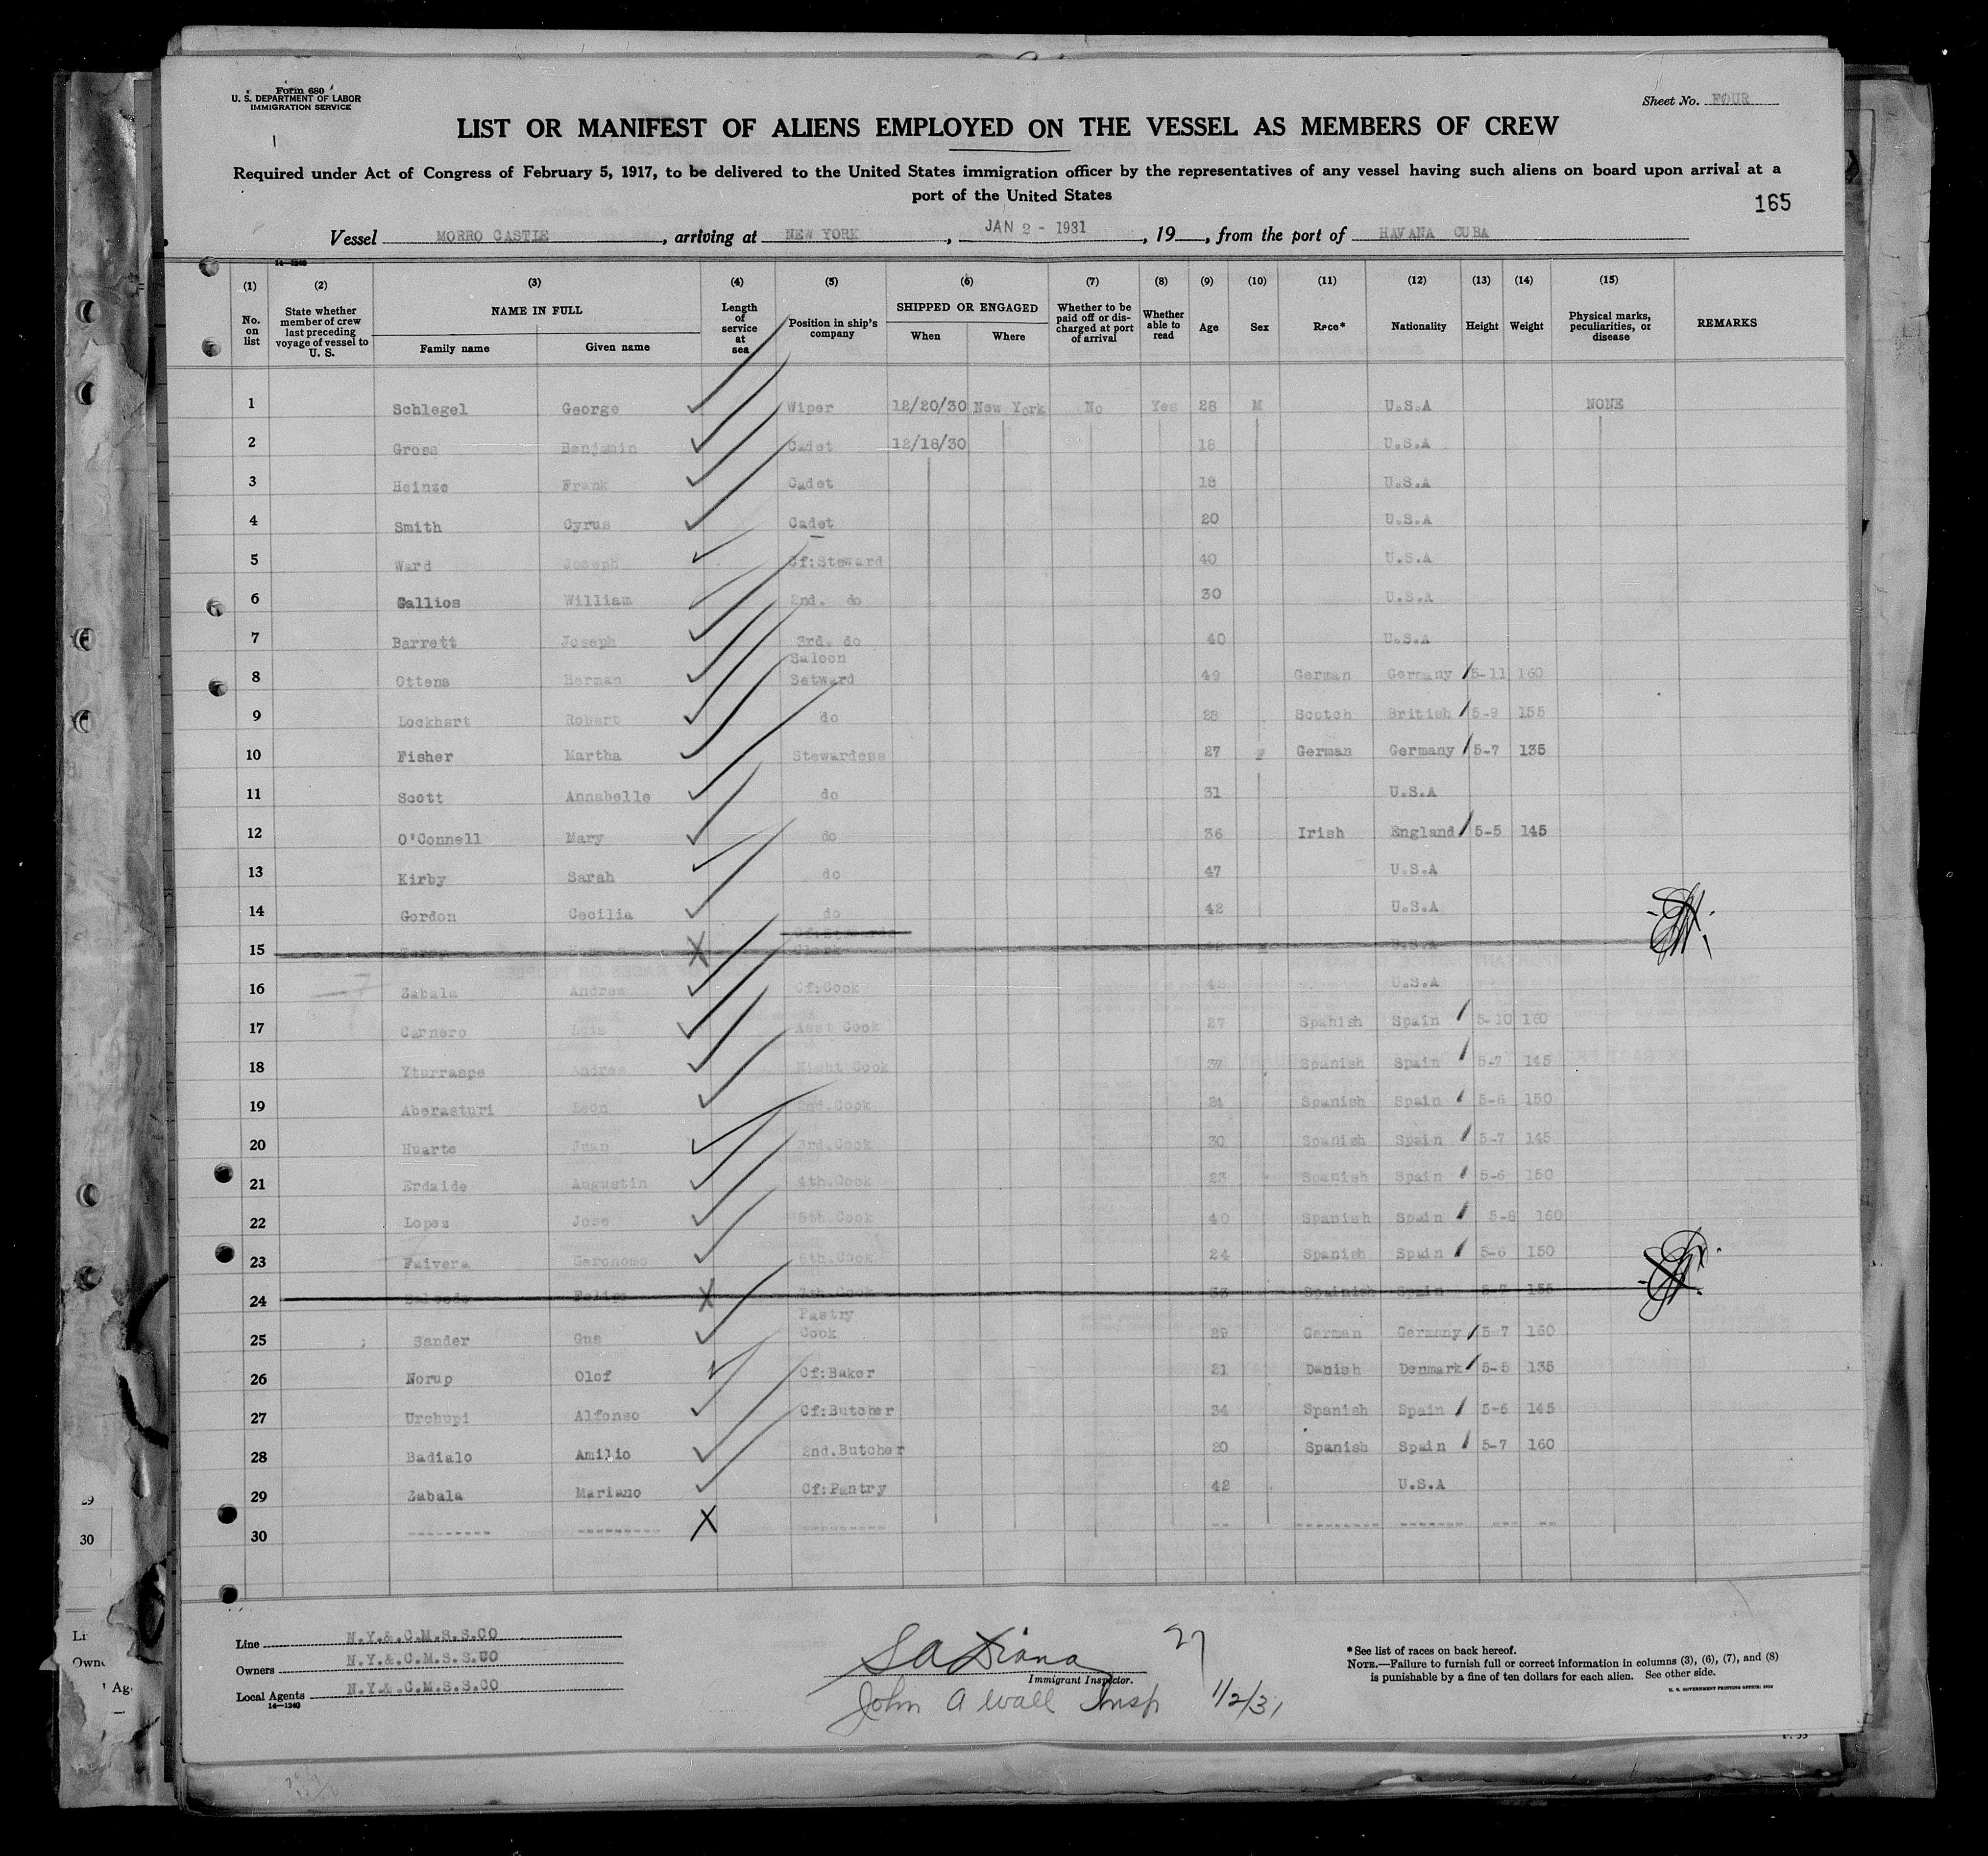 Form 680
U. S. DEPARTMENT OF LABOR
IMMIGRATION SERVICE
Sheet No. FOUR
LIST OR MANIFEST OF ALIENS EMPLOYED ON THE VESSEL AS MEMBERS OF CREW
Required under Act of Congress of February 5, 1917, to be delivered to the United States immigration officer by the representatives of any vessel having such aliens on board upon arrival at a
port of the United States
165
Vessel MORRO CASTLE, arriving at NEW YORK, JAN 2 - 1931, 19, from the port of HAVANA CUBA
14-1240
(1) (2) (3) (4) (5) (6) (7) (8) (9) (10) (11) (12) (13) (14) (15)
No. on list State whether member of crew last preceding voyage of vessel to U. S. NAME IN FULL Family name Given name Length of service at sea Position in ship's company SHIPPED OR ENGAGED When Where Whether to be paid off or discharged at port of arrival Whether able to read Age Sex Race* Nationality Height Weight Physical marks, peculiarities, or disease REMARKS
1 Schlegel George Wiper 12/20/30 New York No Yes 28 M U.S.A NONE
2 Gross Benjamin Cadet 12/18/30 18 U.S.A
3 Heinze Frank Cadet 18 U.S.A
4 Smith Cyrus Cadet 20 U.S.A
5 Ward Joseph Cf:Steward 40 U.S.A
6 Gallios William 2nd. do 30 U.S.A
7 Barrett Joseph 3rd. do 40 U.S.A
8 Ottens Herman Saloon Setward 49 German Germany 5-11 160
9 Lockhart Robert do 28 Scotch British 5-9 155
10 Fisher Martha Stewardess 27 F German Germany 5-7 135
11 Scott Annabelle do 31 U.S.A
12 O'Connell Mary do 36 Irish England 5-5 145
13 Kirby Sarah do 47 U.S.A
14 Gordon Cecilia do 42 U.S.A
15 Clerk M U.S.A
16 Zabala Andrew Cf:Cook 42 U.S.A
17 Carnero Luis Asst Cook 27 Spanish Spain 5-10 160
18 Yturraspe Andres Night Cook 37 Spanish Spain 5-7 145
19 Aberasturi Leon 2nd.Cook 24 Spanish Spain 5-6 150
20 Huarte Juan 3rd.Cook 30 Spanish Spain 5-7 145
21 Erdaide Augustin 4th.Cook 23 Spanish Spain 5-6 150
22 Lopez Jose 5th.Cook 40 Spanish Spain 5-8 160
23 Faivera Geronomo 6th.Cook 24 Spanish Spain 5-6 150
24 Salcedo Felipe 7th.Cook 33 Spainish Spain 5-7 155
25 Sander Gus Pastry Cook 29 German Germany 5-7 160
26 Norup Olof Cf:Baker 21 Danish Denmark 5-5 135
27 Urchupi Alfonso Cf:Butcher 34 Spanish Spain 5-6 145
28 Badialo Amilio 2nd.Butcher 20 Spanish Spain 5-7 160
29 Zabala Mariano Cf:Pantry 42 U.S.A
30 --------- --------- ---------- -- --------- ------- --- --
29
30
Line N.Y.&.C.M.S.S.CO
Owners N.Y.&.C.M.S.S.CO
Local Agents N.Y.&.C.M.S.S.CO
14-1240
S A Diana 27
Immigrant Inspector.
John A Wall Insp 1/2/31
*See list of races on back hereof.
NOTE.—Failure to furnish full or correct information in columns (3), (6), (7), and (8)
is punishable by a fine of ten dollars for each alien. See other side.
U. S. GOVERNMENT PRINTING OFFICE: